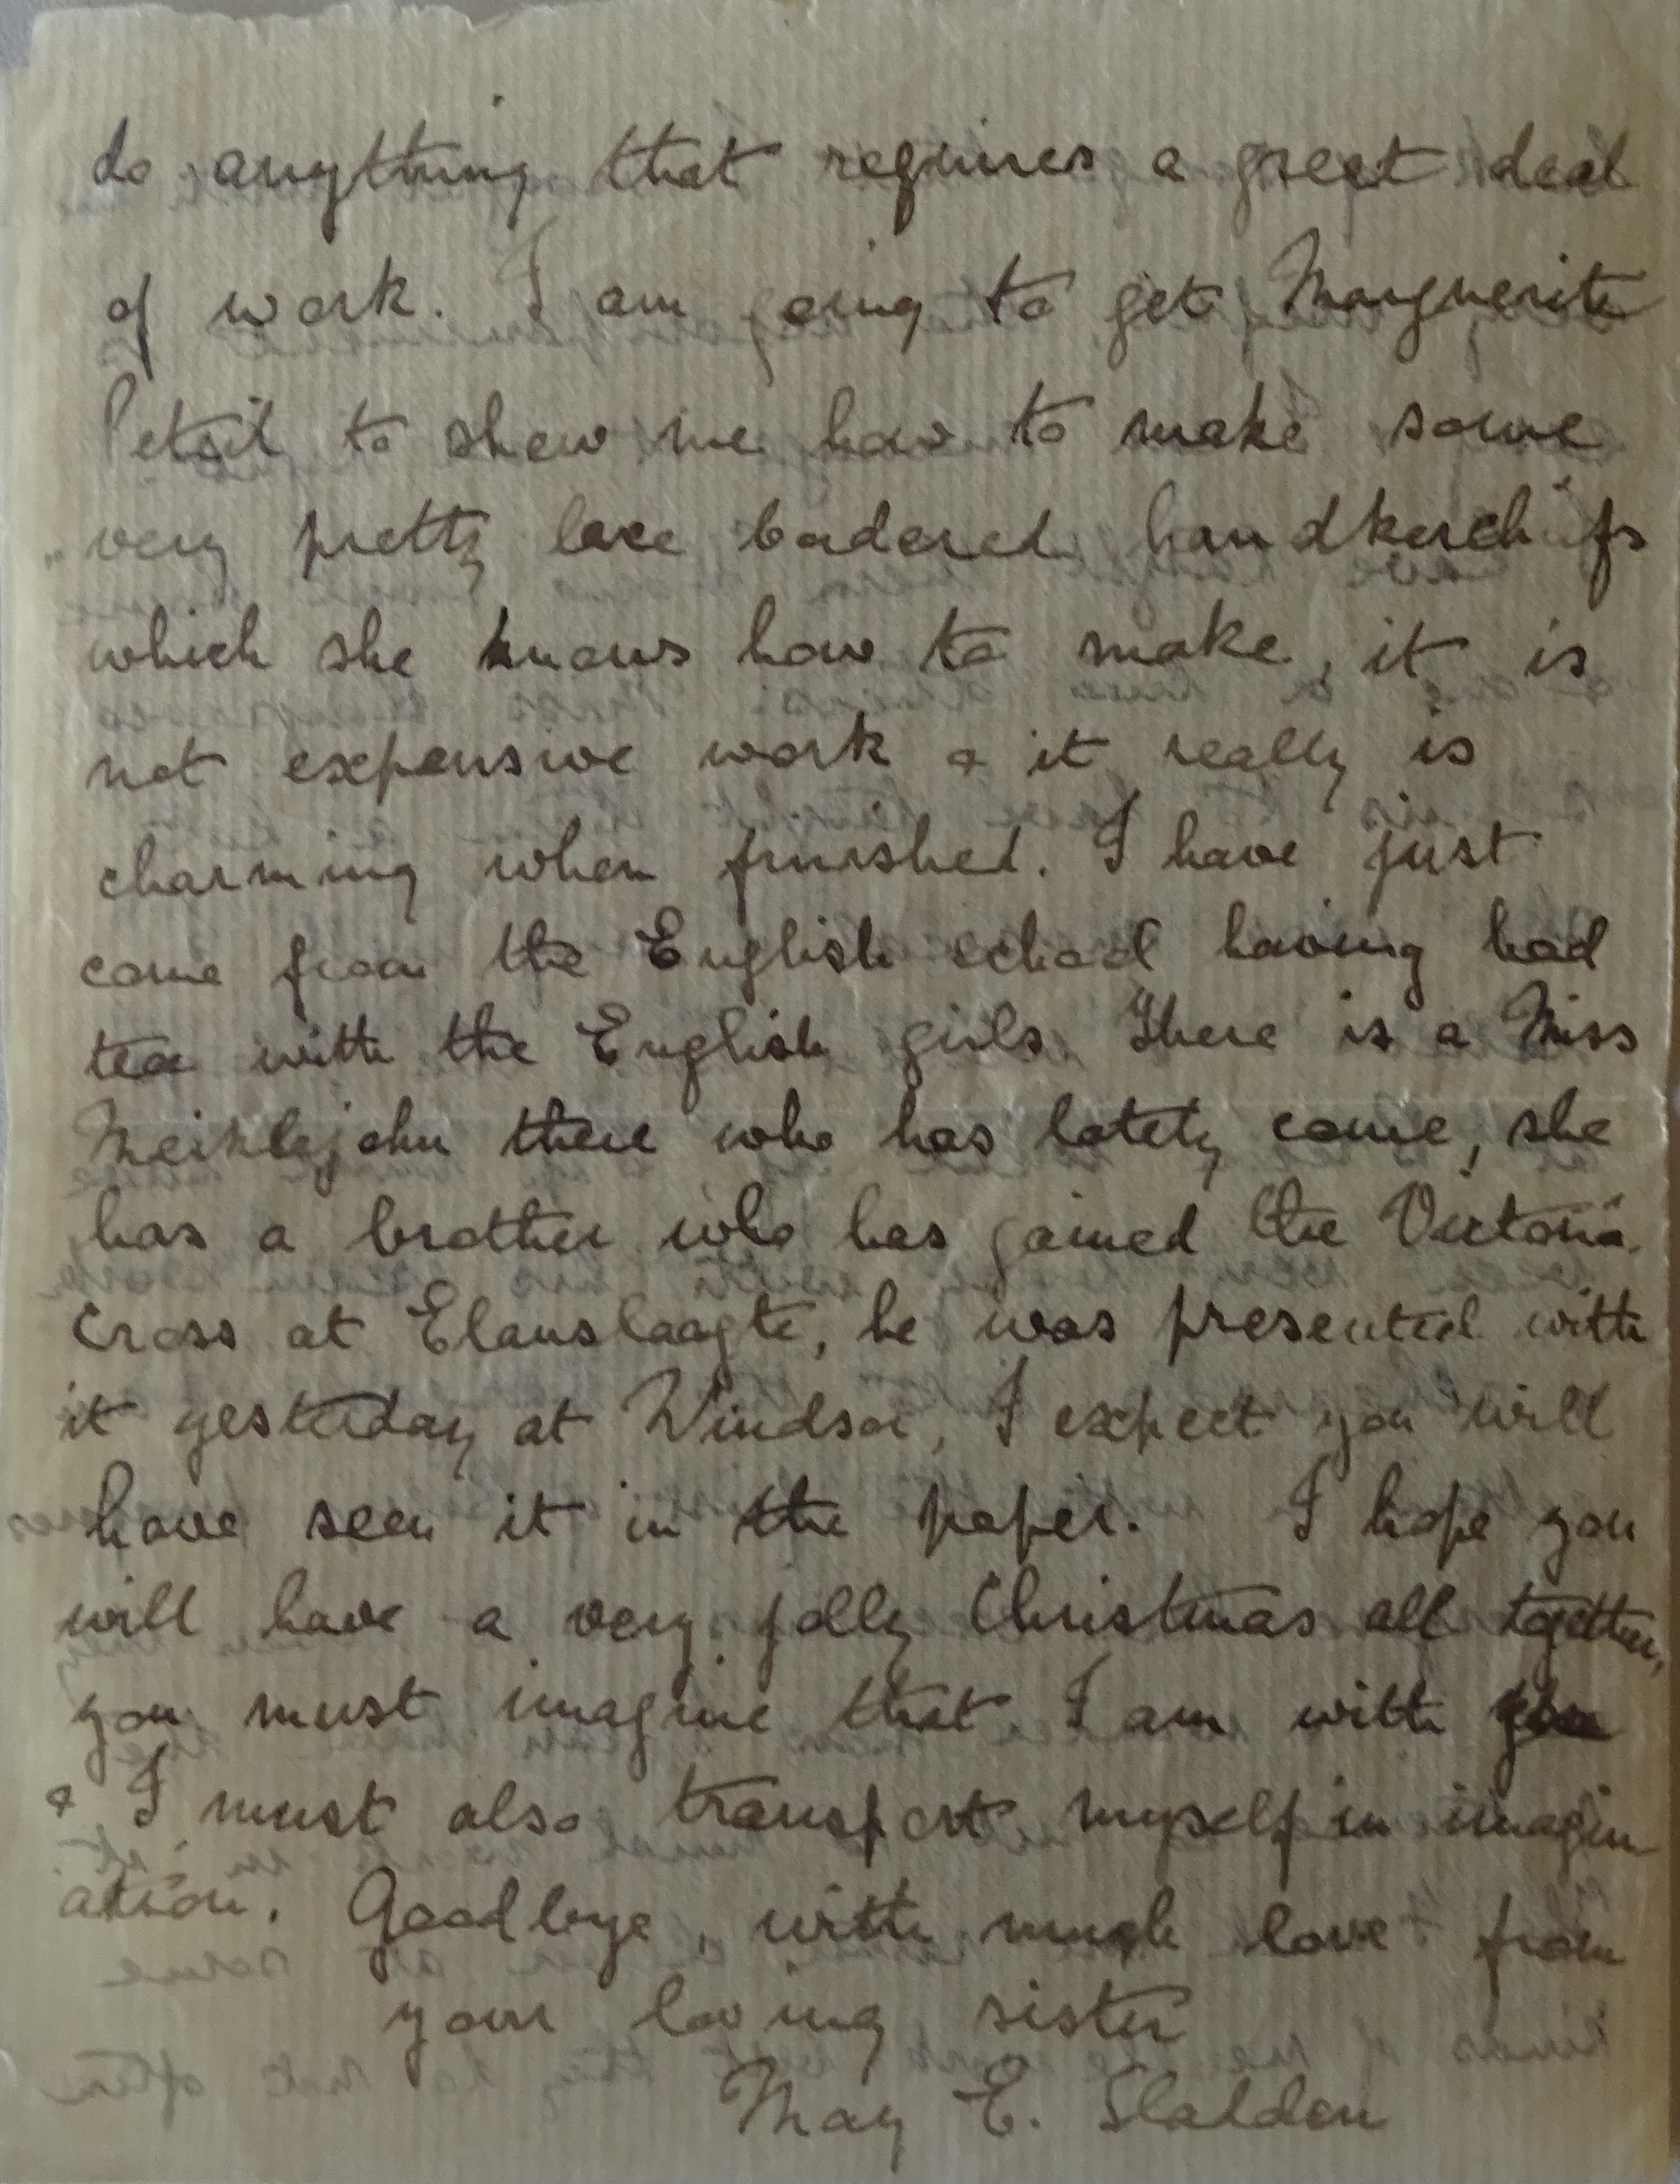 do anything that requires a great deal
of work. I am going to get Marguerite
Petoit to shew me how to make some
very pretty lace bordered handkerchifs
which she knows how to make, it is
not expensive work & it really is
charming when finished. I have just
come from the English school having had
tea with the English girls. There is a Miss
Meiklejohn there who has lately come, she
has a brother who has gained the Victoria
Cross at Elanslaagte, he was presented with
it yesterday at Windsor, I expect you will
have seen it in the paper. I hope you
will have a very jolly Christmas all together,
you must imagine that I am with you
& I must also transport myself in imagin
ation. Goodbye, with much love from
your loving sister
May E. Sladden